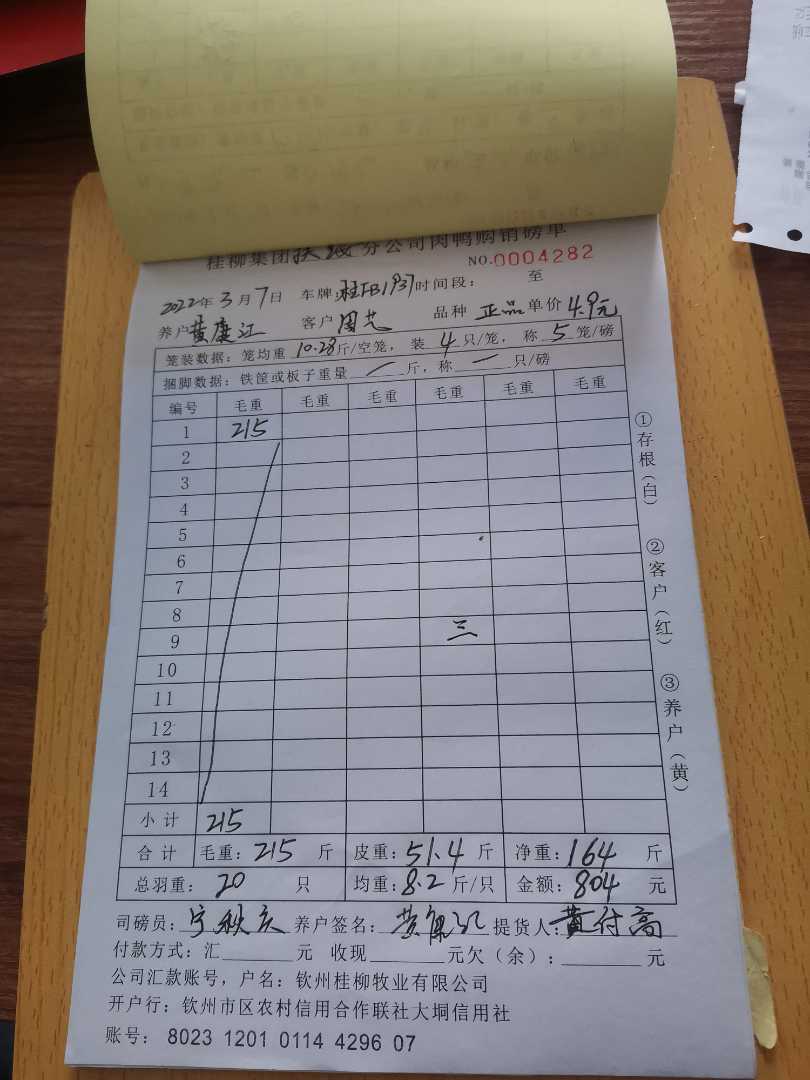 桂柳集团扶绥分公司肉鸭购销磅单
NO.0004282
2022年3月7日 车牌:桂FB1937 时间段: 至
养户 黄廉江 客户 周芝 品种 正品 单价 4.9元
笼装数据: 笼均重 10.28 斤/空笼, 装 4 只/笼, 称 5 笼/磅
捆脚数据: 铁筐或板子重量 / 斤, 称 一 只/磅
编号 毛重 毛重 毛重 毛重 毛重 毛重
1 215
2
3
4
5
6
7
8
9 三
10
11
12
13
14
小计 215
合计 毛重: 215 斤 皮重: 51.4 斤 净重: 164 斤
总羽重: 20 只 均重: 8.2 斤/只 金额: 804 元
司磅员: 宁秋 养户签名: 黄 提货人: 黄付高
付款方式: 汇 元 收现 元欠(余): 元
公司汇款账号, 户名: 钦州桂柳牧业有限公司
开户行: 钦州市区农村信用合作联社大垌信用社
账号: 8023 1201 0114 4296 07
①存根(白)
②客户(红)
③养户(黄)